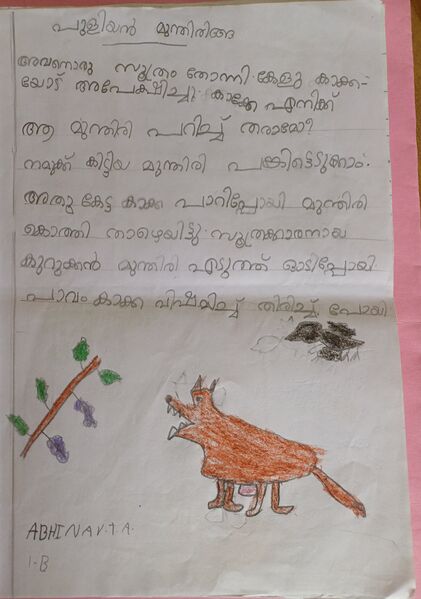 പുളിയൻ മുന്തിരിങ്ങ
അവനൊരു സൂത്രം തോന്നി. കേളു കാക്ക-
യോട് അപേക്ഷിച്ചു. കാക്കേ എനിക്ക്
ആ മുന്തിരി പറിച്ച് തരാമോ?
നമുക്ക് കിട്ടിയ മുന്തിരി പങ്കിട്ടെടുക്കാം.
അതു കേട്ട കാക്ക പാറിപ്പോയി മുന്തിരി
കൊത്തി താഴെയിട്ടു. സൂത്രക്കാരനായ
കുറുക്കൻ മുന്തിരി എടുത്ത് ഓടിപ്പോയി
പാവം കാക്ക വിഷമിച്ച് തിരിച്ച് പോയി
ABHINAV.T.A.
1-B